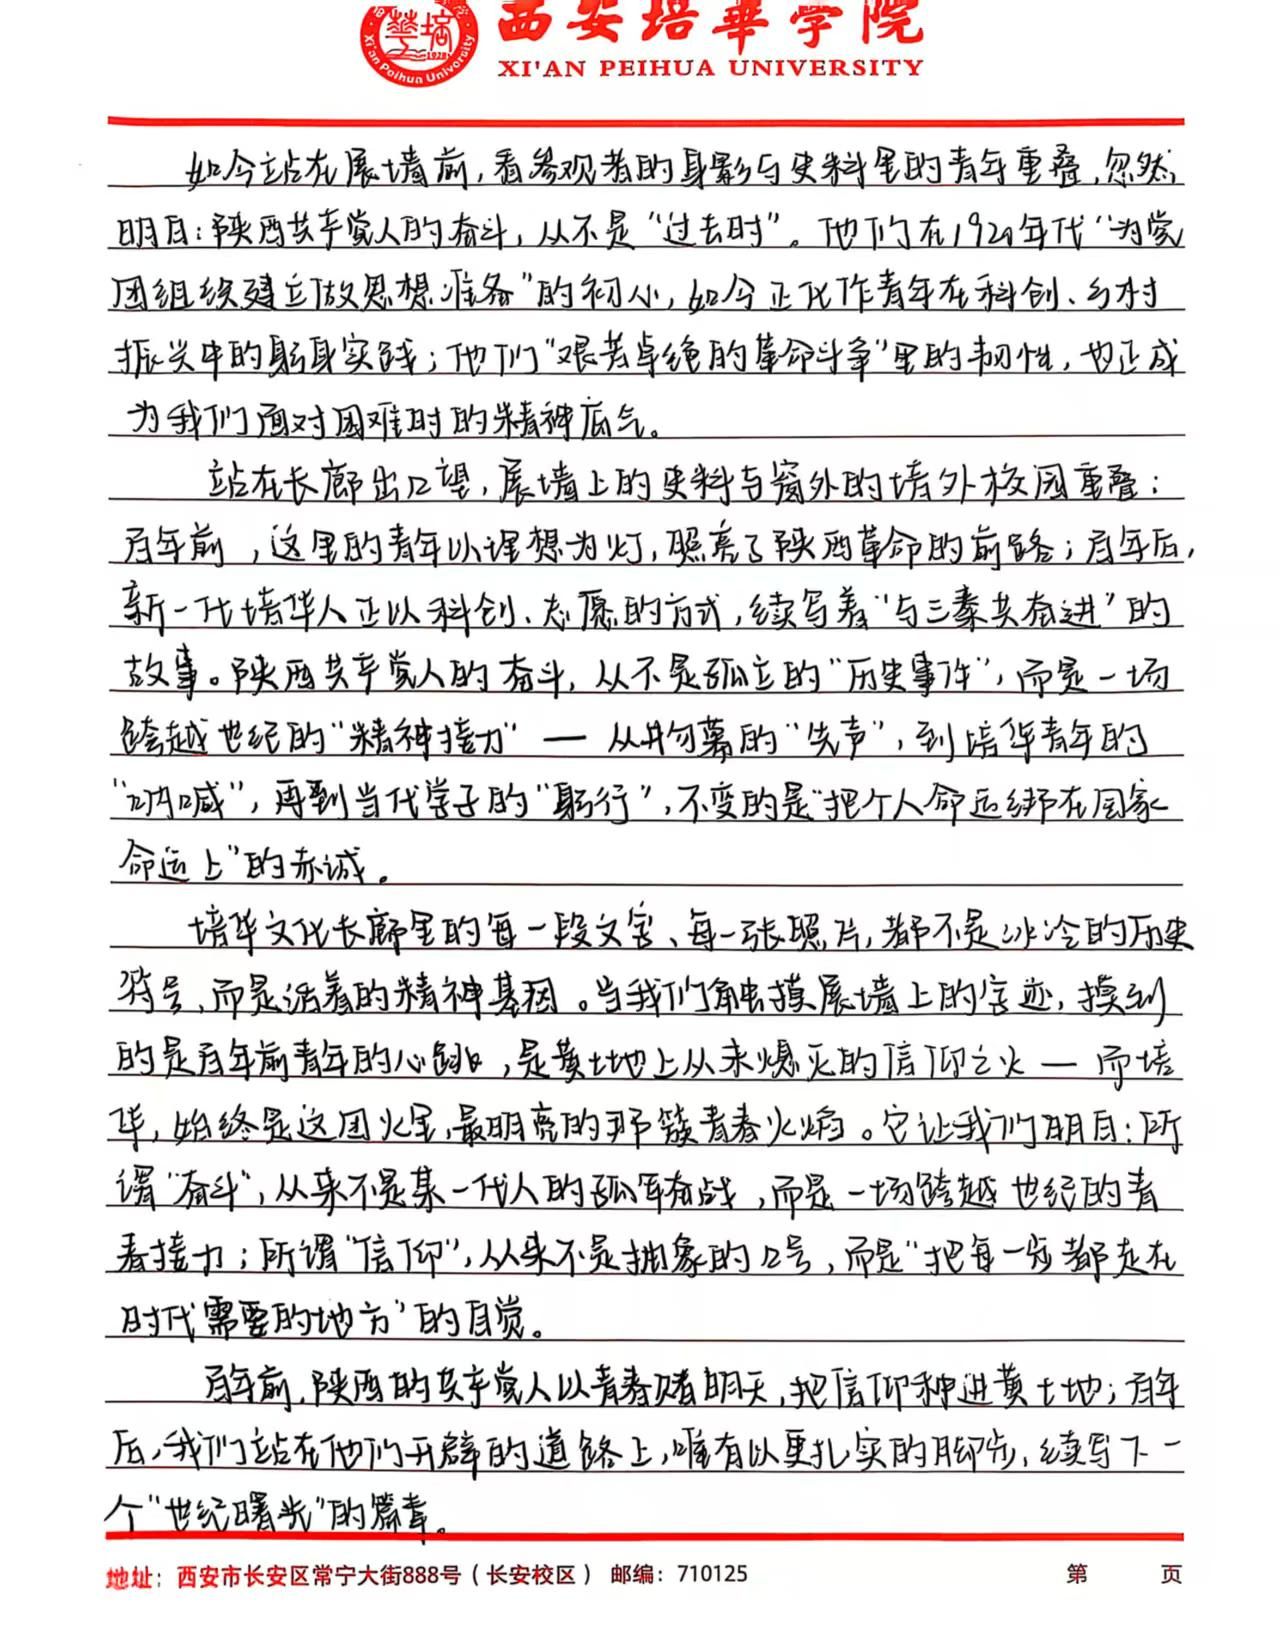 西安培華学院
Xi'an Peihua University
XI'AN PEIHUA UNIVERSITY
如今站在展墙前，看参观者的身影与史料里的青年重叠，忽然
明白：陕西共产党人的奋斗，从不是“过去时”。他们在1920年代“为党
团组织建立做思想准备”的初心，如今正化作青年在科创、乡村
振兴中的躬身实践；他们“艰苦卓绝的革命斗争”里的韧性，也正成
为我们面对困难时的精神底气。
站在长廊出口望，展墙上的史料与窗外的墙外校园重叠：
百年前，这里的青年以理想为灯，照亮了陕西革命的前路；百年后，
新一代培华人正以科创、志愿的方式，续写着“与三秦共奋进”的
故事。陕西共产党人的奋斗，从不是孤立的“历史事件”，而是一场
跨越世纪的“精神接力”— 从井勿幕的“先声”，到培华青年的
“呐喊”，再到当代学子的“躬行”，不变的是“把个人命运绑在国家
命运上”的赤诚。
培华文化长廊里的每一段文字、每一张照片，都不是冰冷的历史
符号，而是活着的精神基因。当我们触摸展墙上的字迹，摸到
的是百年前青年的心跳，是黄土地上从未熄灭的信仰之火 — 而培
华，始终是这团火里，最明亮的那簇青春火焰。它让我们明白：所
谓“奋斗”，从来不是某一代人的孤军奋战，而是一场跨越世纪的青
春接力；所谓“信仰”，从来不是抽象的口号，而是“把每一步都走在
时代需要的地方”的自觉。
百年前，陕西的共产党人以青春赌明天，把信仰种进黄土地；百年
后，我们站在他们开辟的道路上，唯有以更扎实的脚步，续写下一
个“世纪曙光”的篇章。
地址：西安市长安区常宁大街888号（长安校区） 邮编：710125 第 页